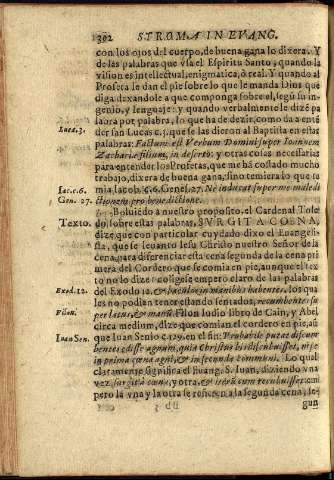 392 STROMA IN EVANG.
con los ojos del cuerpo, de buena gana lo dixera. Y
de las palabras que vsa el Espiritu Santo, quando la
vision es intellectual, enigmatica, ò real. Y quando al
Profeta le dan el pie sobre lo que le manda Dios que
diga dexandole a que componga sobre el, segũ su in-
genio, y lenguaje: y quando verbalmente le dizẽ pa
labra por palabra, lo que ha de dezir, como da a entẽ
Luca. 3.
der san Lucas c. 3. que se las dieron al Baptista en estas
palabras: Factum est Verbum Domini super Ioannem
Zachariæ filium, in deserto: y otras cosas necessarias
para entender los Profetas, que me hã costado mucho
trabajo, dixera de buena gana, sino temiera lo que
Iac. c. 6.
Gen. 27.
Ne inducat super me male di
ctionem pro benedictione.
Boluiẽdo a nuestro proposito. El Cardenal Tole
Texto.
do sobre estas palabras, SVRGIT A COENA,
dize, que con particular cuydado dixo el Euangelis-
ta, que se leuanto Iesu Christo nuestro Señor de la
cena, para diferenciar esta cena segunda de la cena pri
mera del Cordero que se comia en pie, aunque el tex
to no lo dize: coligese empero claro de las palabras
Exod. 12.
del Exodo 12. & baculos in manibus habentes. los qua
les no podian tener estando sentados, recumbentes su
Filon.
per latus, & manũ. Filon Iudio libro de Cain, y Abel
circa medium, dize que comian el cordero en pie, aũ
Iuan Sen.
que Iuan Senio c. 129. en el fin:
in prima cœna agni, & in secunda communi. Lo qual
claramente significa el Euang. S. Iuan, diziendo vna
vez, surgit à cœna, y otra,
pero la vna y la otra se refieren a la segunda cena, se-
gun